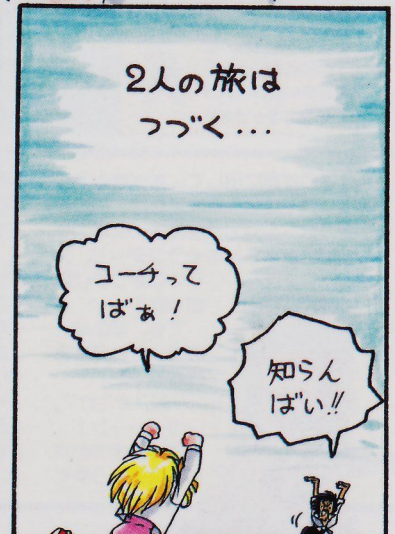 2人の旅は
つづく...
コーチって
ばぁ!
知らん
ばい!!